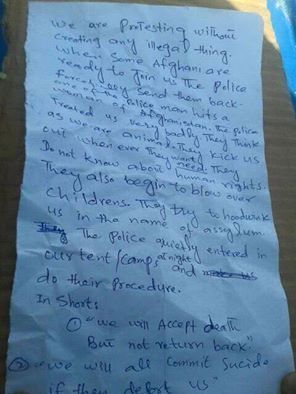 We are Protesting without
creating any illegal thing.
When some Afghani are
ready to join us The Police
forcefully send them back.
one of the Police man hits a
woman of Afghanistan. The Police
Treated us very badly They Think
as we are animals. They kick us
out when ever They want need. They
Do not know about human rights.
They also begin to blow over
childrens. They try to hoodwink
us in the name of assylum.
The Police quietly entered in
our tent/camps at night and
do their procedure.
In Short:
① "we will Accept death
But not return back."
② "we will all commit sucide
if they deport us"